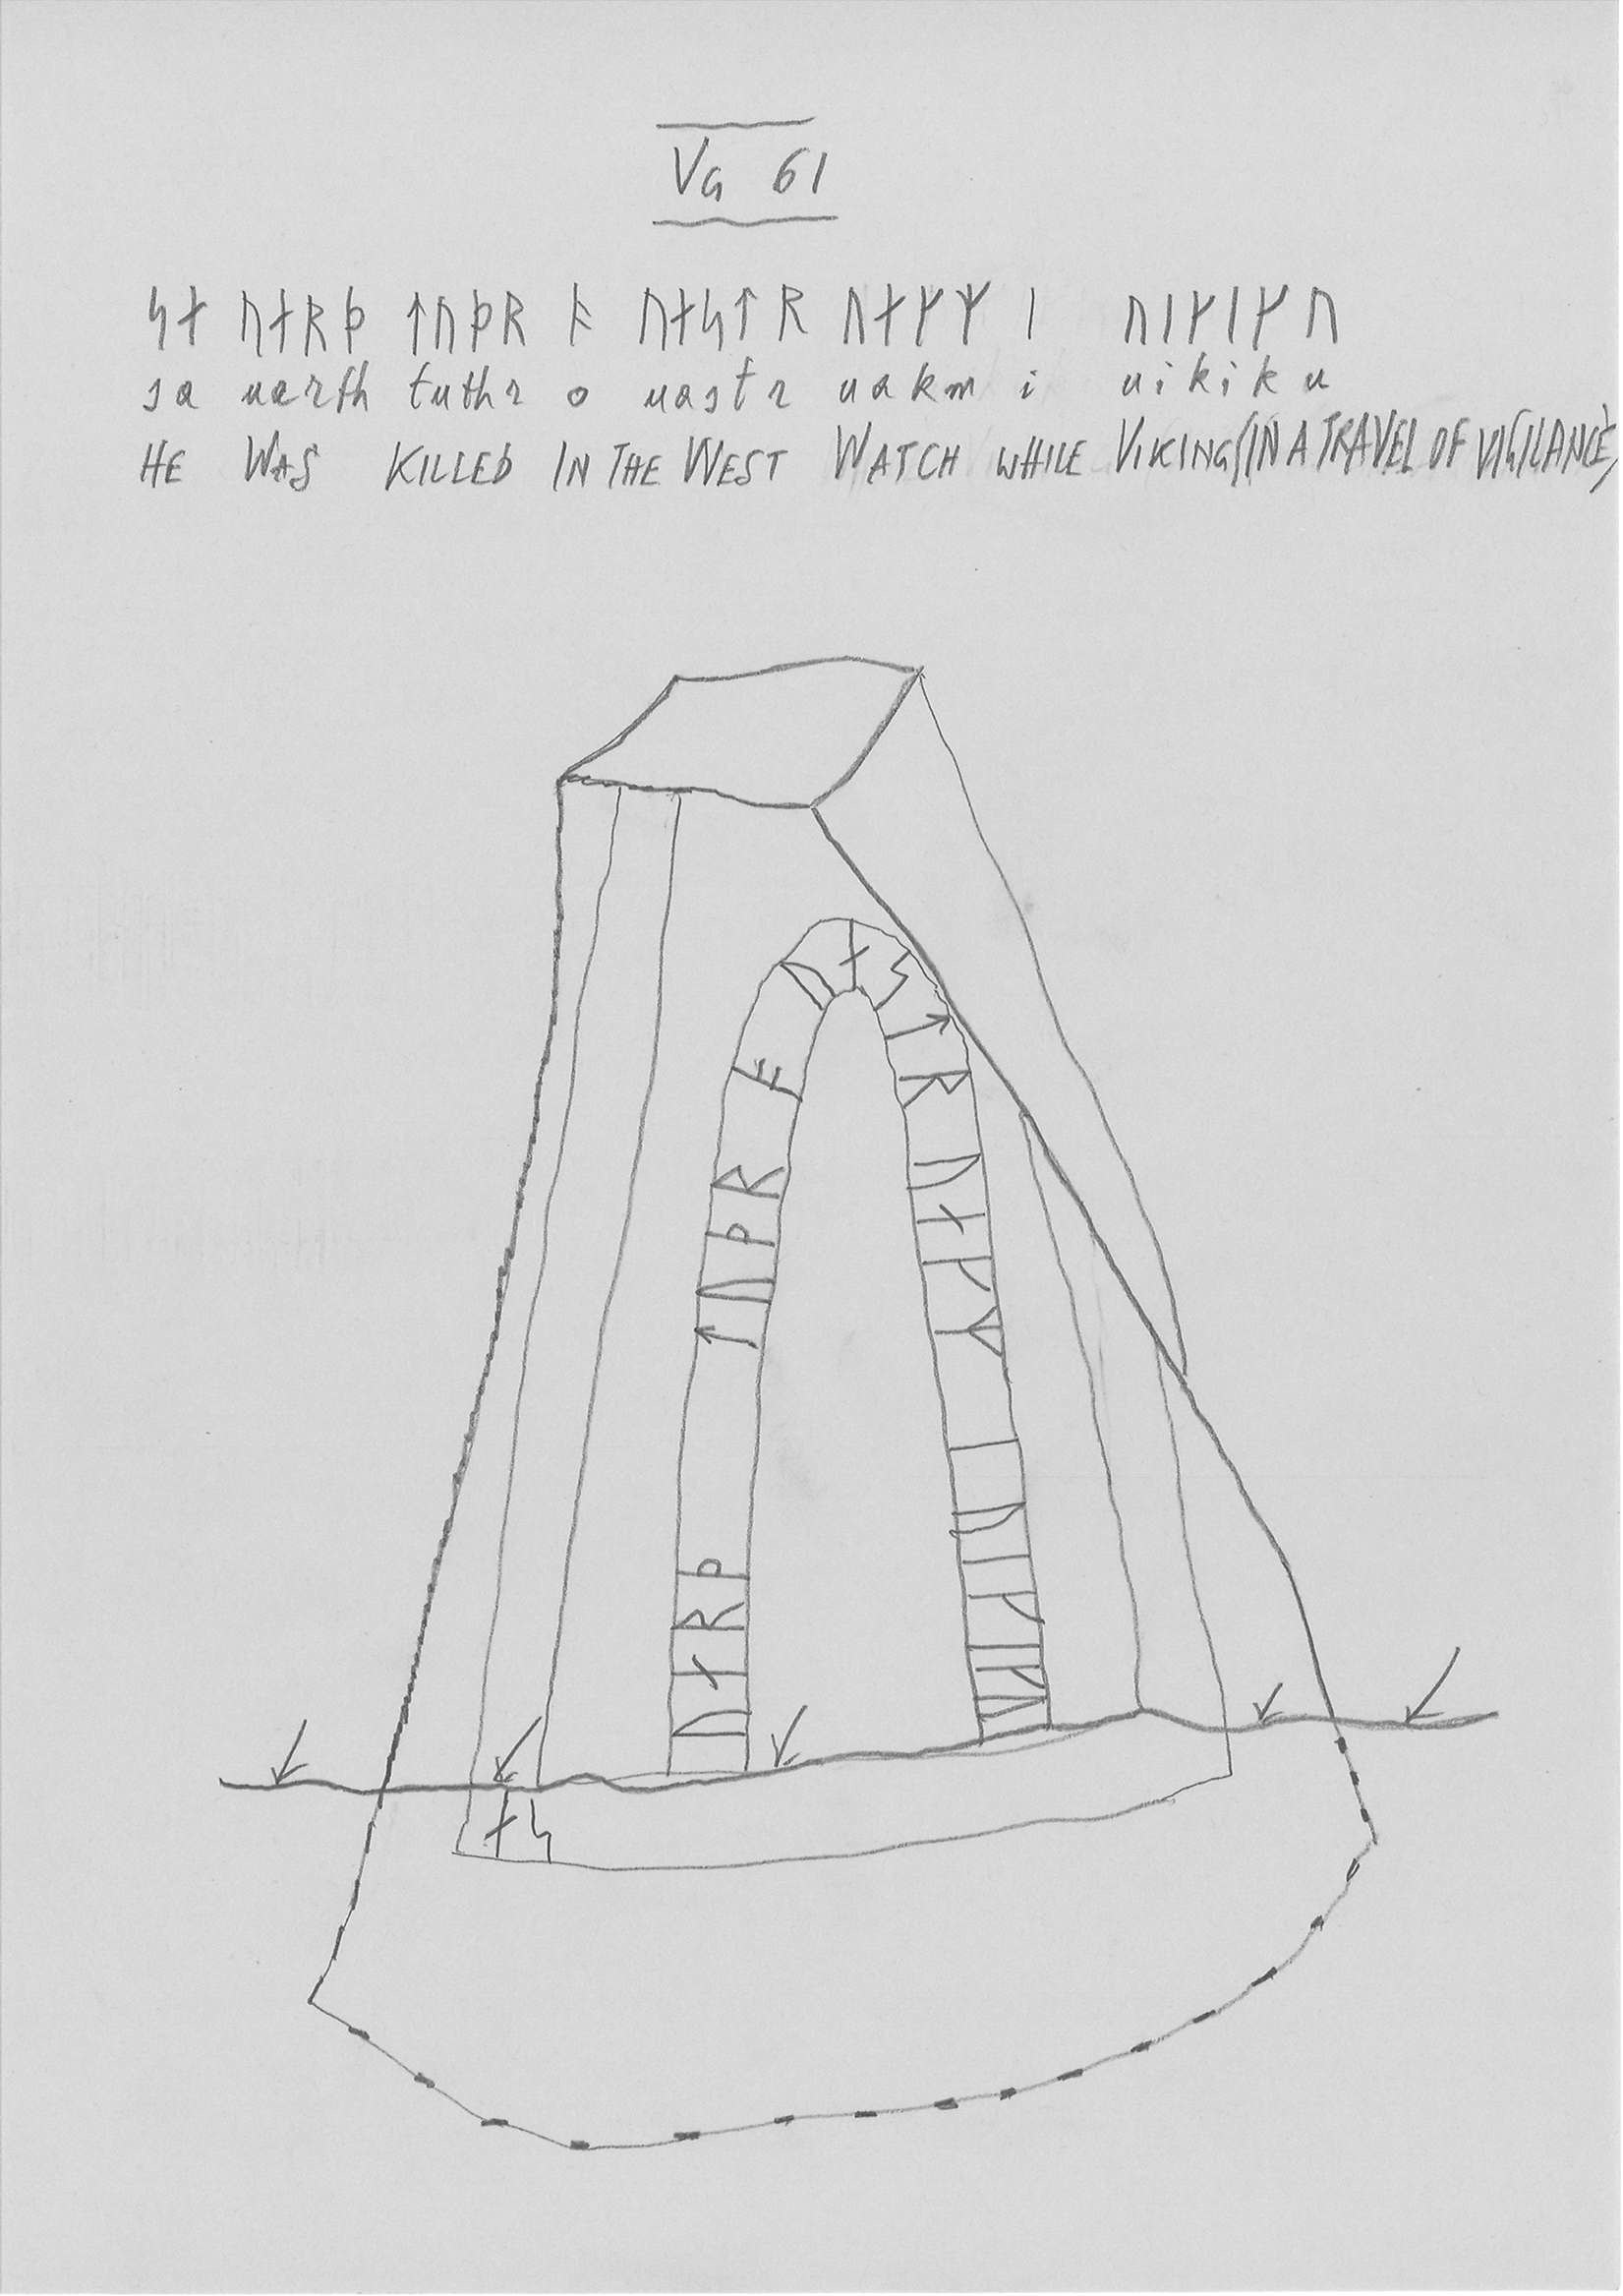 VG 61
ᛋᛅ ᚢᛅᚱᚦ ᛏᚢᚦᚱ ᚬ ᚢᛅᛋᛏᚱ ᚢᛅᚴᛘ ᛁ ᚢᛁᚴᛁᚴᚢ
sa uarth tuthr o uastr uakm i uikiku
HE WAS KILLED IN THE WEST WATCH WHILE VIKING (IN A TRAVEL OF VIGILANCE)
ᚢᛅᚱᚦ ᛏᚢᚦᚱ ᚬ ᚢᛅᛋᛏᚱ ᚢᛅᚴᛘ ᛁ ᚢᛁᚴᛁᚴᚢ
ᛅᛋ